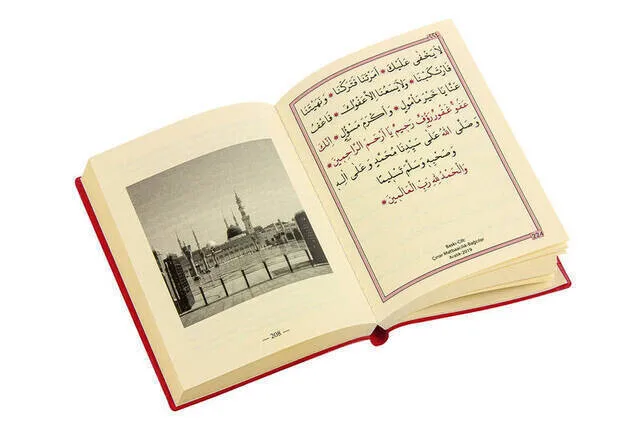 — 208 —
لَا يَخْفَى عَلَيْكَ * اَمَرْتَنَا فَتَرَكْنَا * وَنَهَيْتَنَا
فَارْتَكَبْنَا * وَلَا يَسَعُنَا اِلَّا عَفْوُكَ * فَاعْفُ
عَنَّا يَا خَيْرَ مَأْمُولٍ * وَاَكْرَمَ مَسْؤُلٍ * اِنَّكَ
عَفُوٌّ غَفُورٌ رَؤُفٌ رَحِيمٌ يَا اَرْحَمَ الرَّاحِمِينَ *
وَصَلَّى اللّٰهُ عَلَى سَيِّدِنَا مُحَمَّدٍ وَعَلَى اٰلِهِ
وَصَحْبِهِ وَسَلَّمَ تَسْلِيمًا
وَالْحَمْدُ لِلّٰهِ رَبِّ الْعَالَمِينَ *
Baskı-Cilt:
Çınar Matbaacılık-Bağcılar
Aralık-2019
224